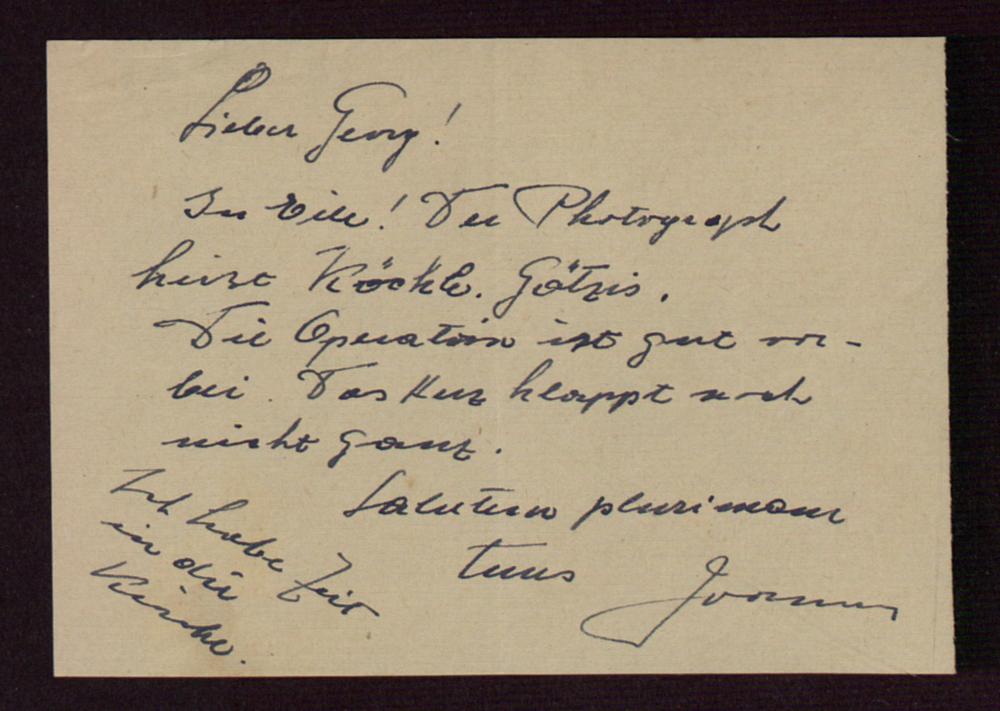 Lieber Georg!
In Eile! Der Photograph
heisst Köckle. Götzis.
Die Operation ist gut vor-
bei. Das Herz klappt noch
nicht ganz.
Salutem plurimam
tuus
Ich habe Zeit
in die
Kirche.